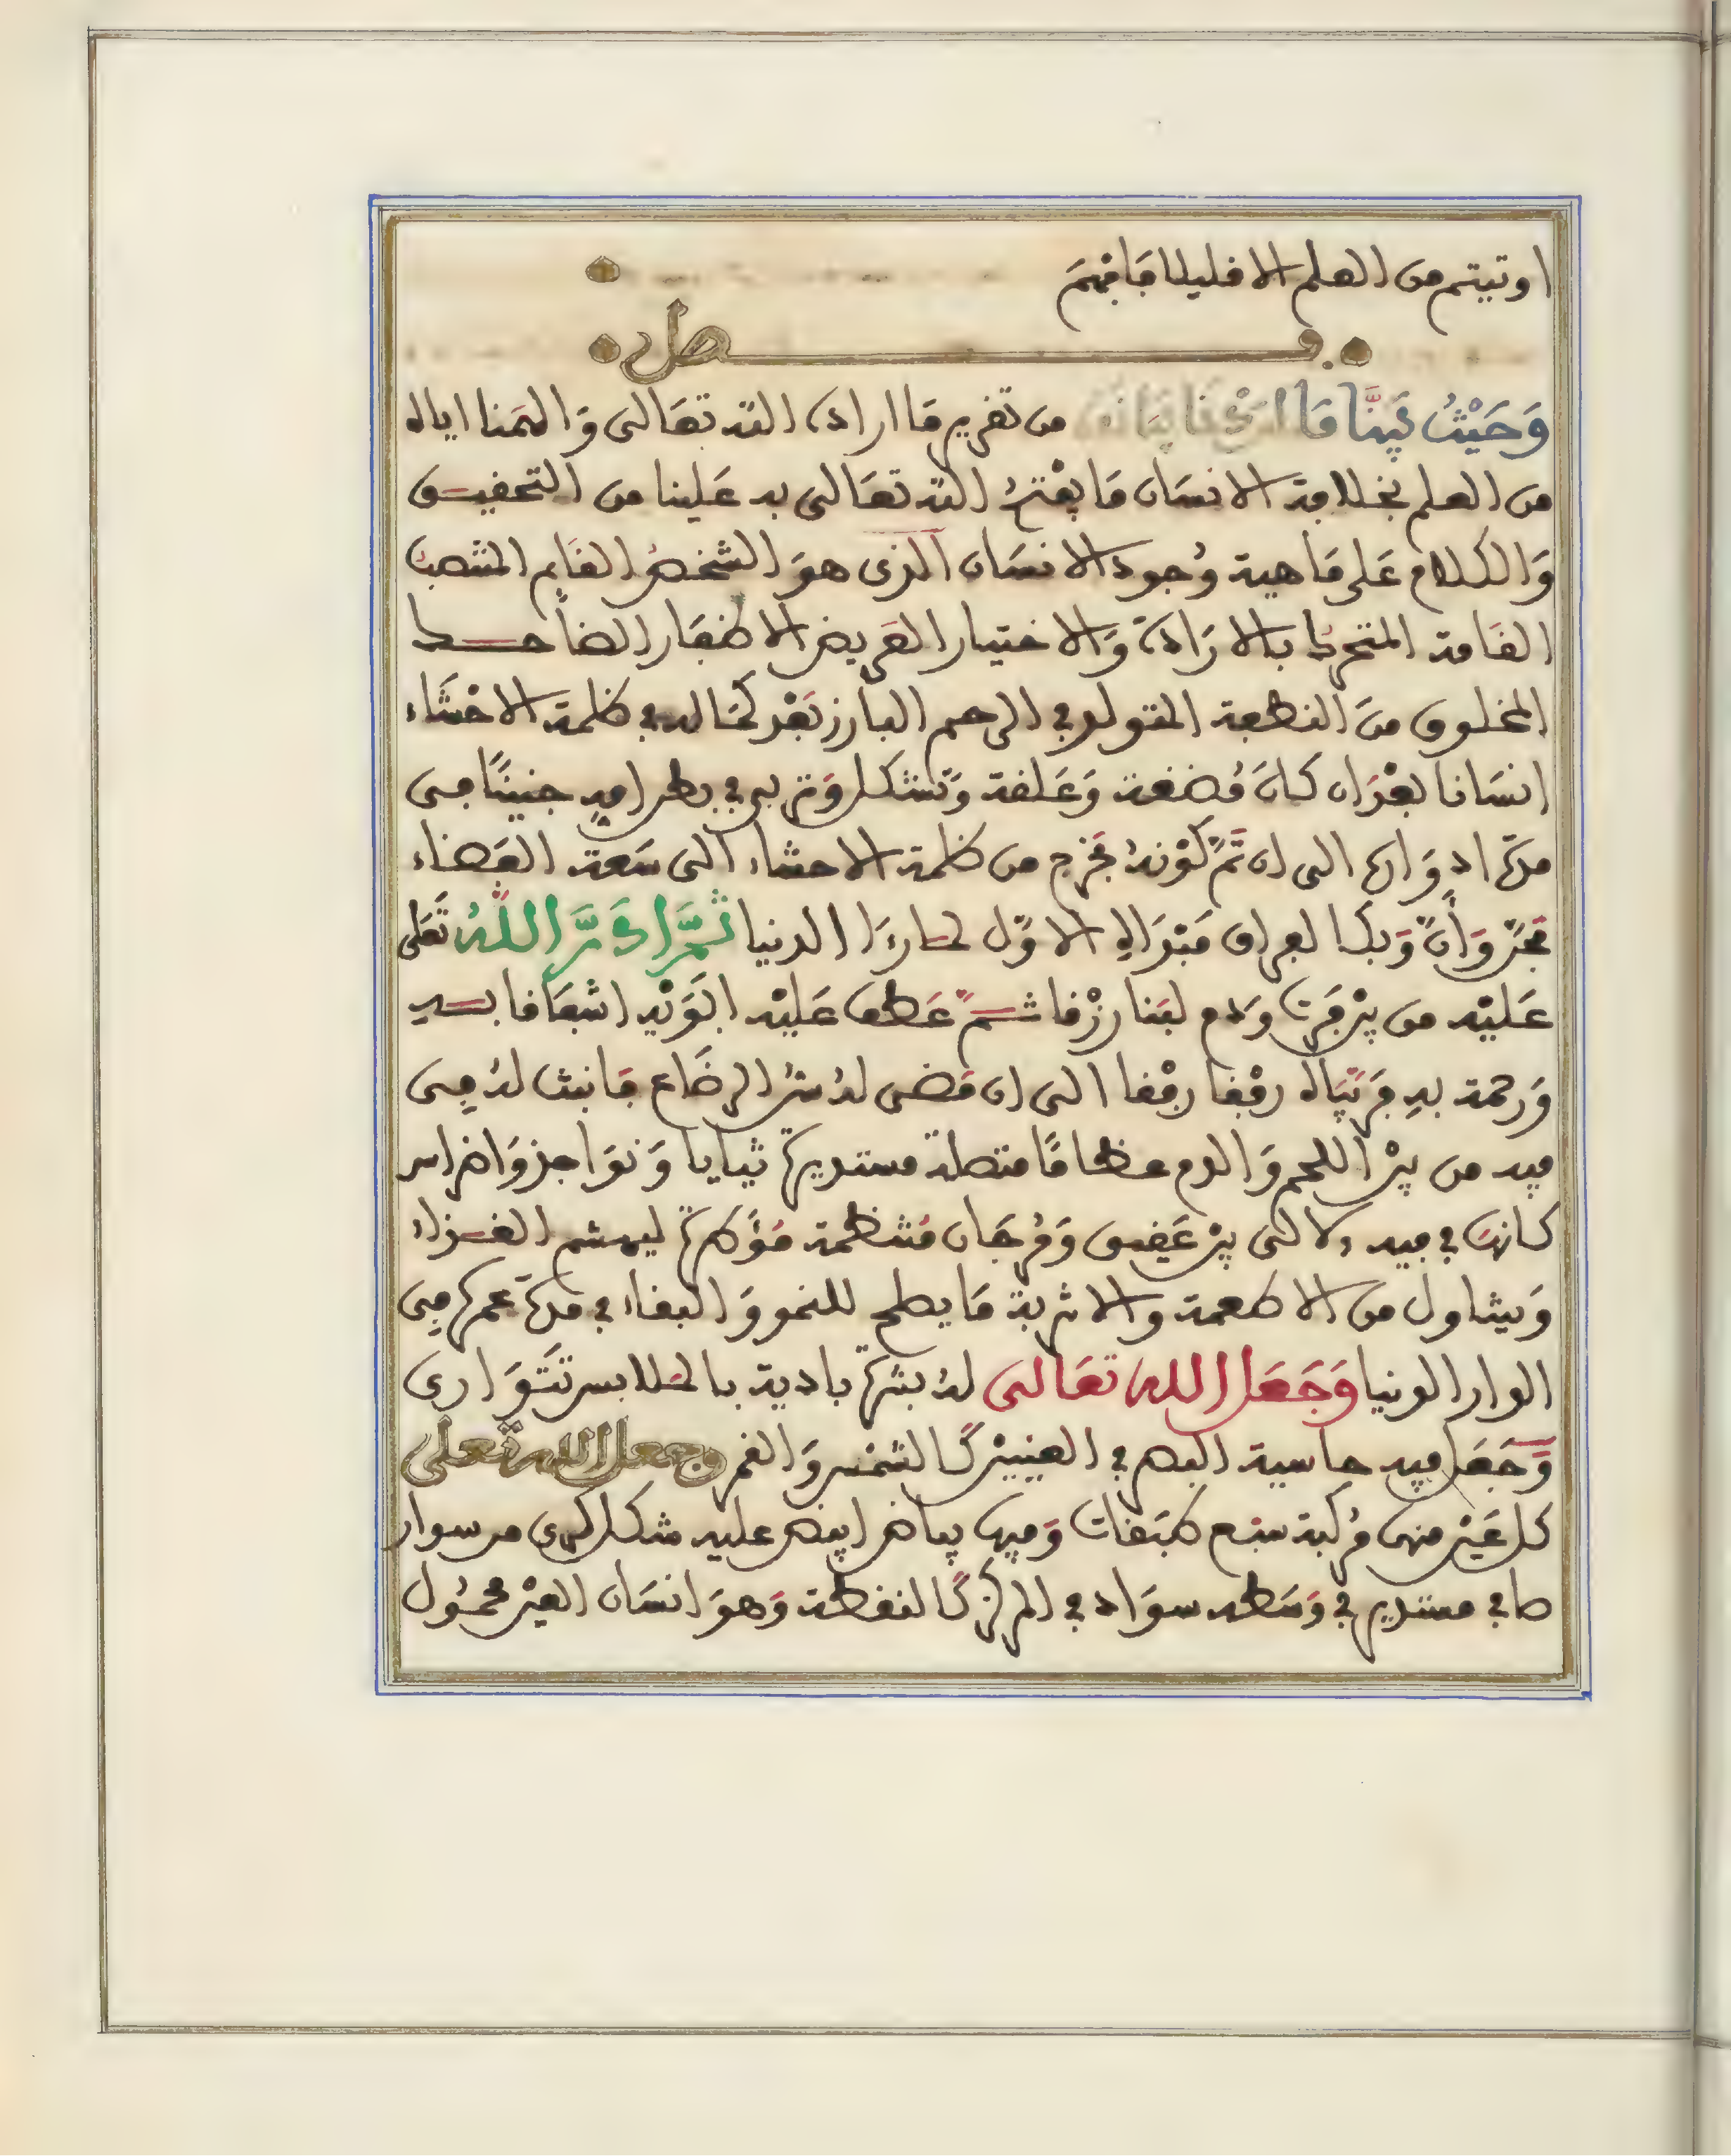 اوتيتم من العلم الا قليلا فافهم
فصل
وَحَيْثُ بَيَّنَّا مَا من تقرير ما اراده الله تعالى وَالهمنا اياه
من العلم بخلافة الانسان ما يفتح الله تعالى به عَلينا من التحقيق
وَالكلام عَلى مَاهية وُجود الانسَان الذى هوَ الشخص القايم المنتصب
القامة المتحرك بالارَادة وَالاختيار العريض الاظفار الضاحك
المخلوق منَ النطفة المتولد في الرحم البارز بَعْد كمَاله في ظلمة الاحْشَاء
انسَانا بعْدَ ان كانَ مُضغة وَعَلقة وَتشكل وَتربى في بطن امهِ جنينًا في
مدة ادوَاره الى ان تَمَّ كوْنهُ فخرج من ظلمة الاحشاء الى سَعة الفضاء
فحَنَّ وَأَنَّ وَبكا لفراق مَبْدَاهِ الاوّل لدارِ الدنيا ثمَّ ادَرَّ اللهُ تَعَلى
عَليْه من بيْن فرْث وَدم لبَنا رزْقا ثمَّ عَطف عَليْه ابَوَيْهِ اشفَاقا بسه
وَرحمة بهِ فرَبّيَاه رفقا رفْقا الى ان مَضى لهُ مدة الرضَاع فانبت لهُ في
فيه من بيْن اللحم وَالدم عظامًا متصلة مستديرة ثنايا وَنوَاجذ وَاضراس
كانها في فيه لالئ بيْن عَقيق وَمرجَان مُنتظمة مُؤكدة ليهشم الغذاء
وَيتناول من الاطعمة والاشربة مَا يصلح للنمو وَالبقاء في مدة عمره في
الدار الدنيا وَجَعَل الله تعَالى لهُ بشرة بادية بالملابس تتَوَارى
وَجَعَل فيه حاسية البصر في العينيْن كَالشمْس وَالقمر وجعل الله تعلى
كل عَيْن منهم مركبة سبع طبَقات وَفيها بياض ابيض عليه شكل كرى من سواد
صافي مستدير في وَسَطه سوَاد في المركز كَالنقطة وَهوَ انسَان العيْن محمُول